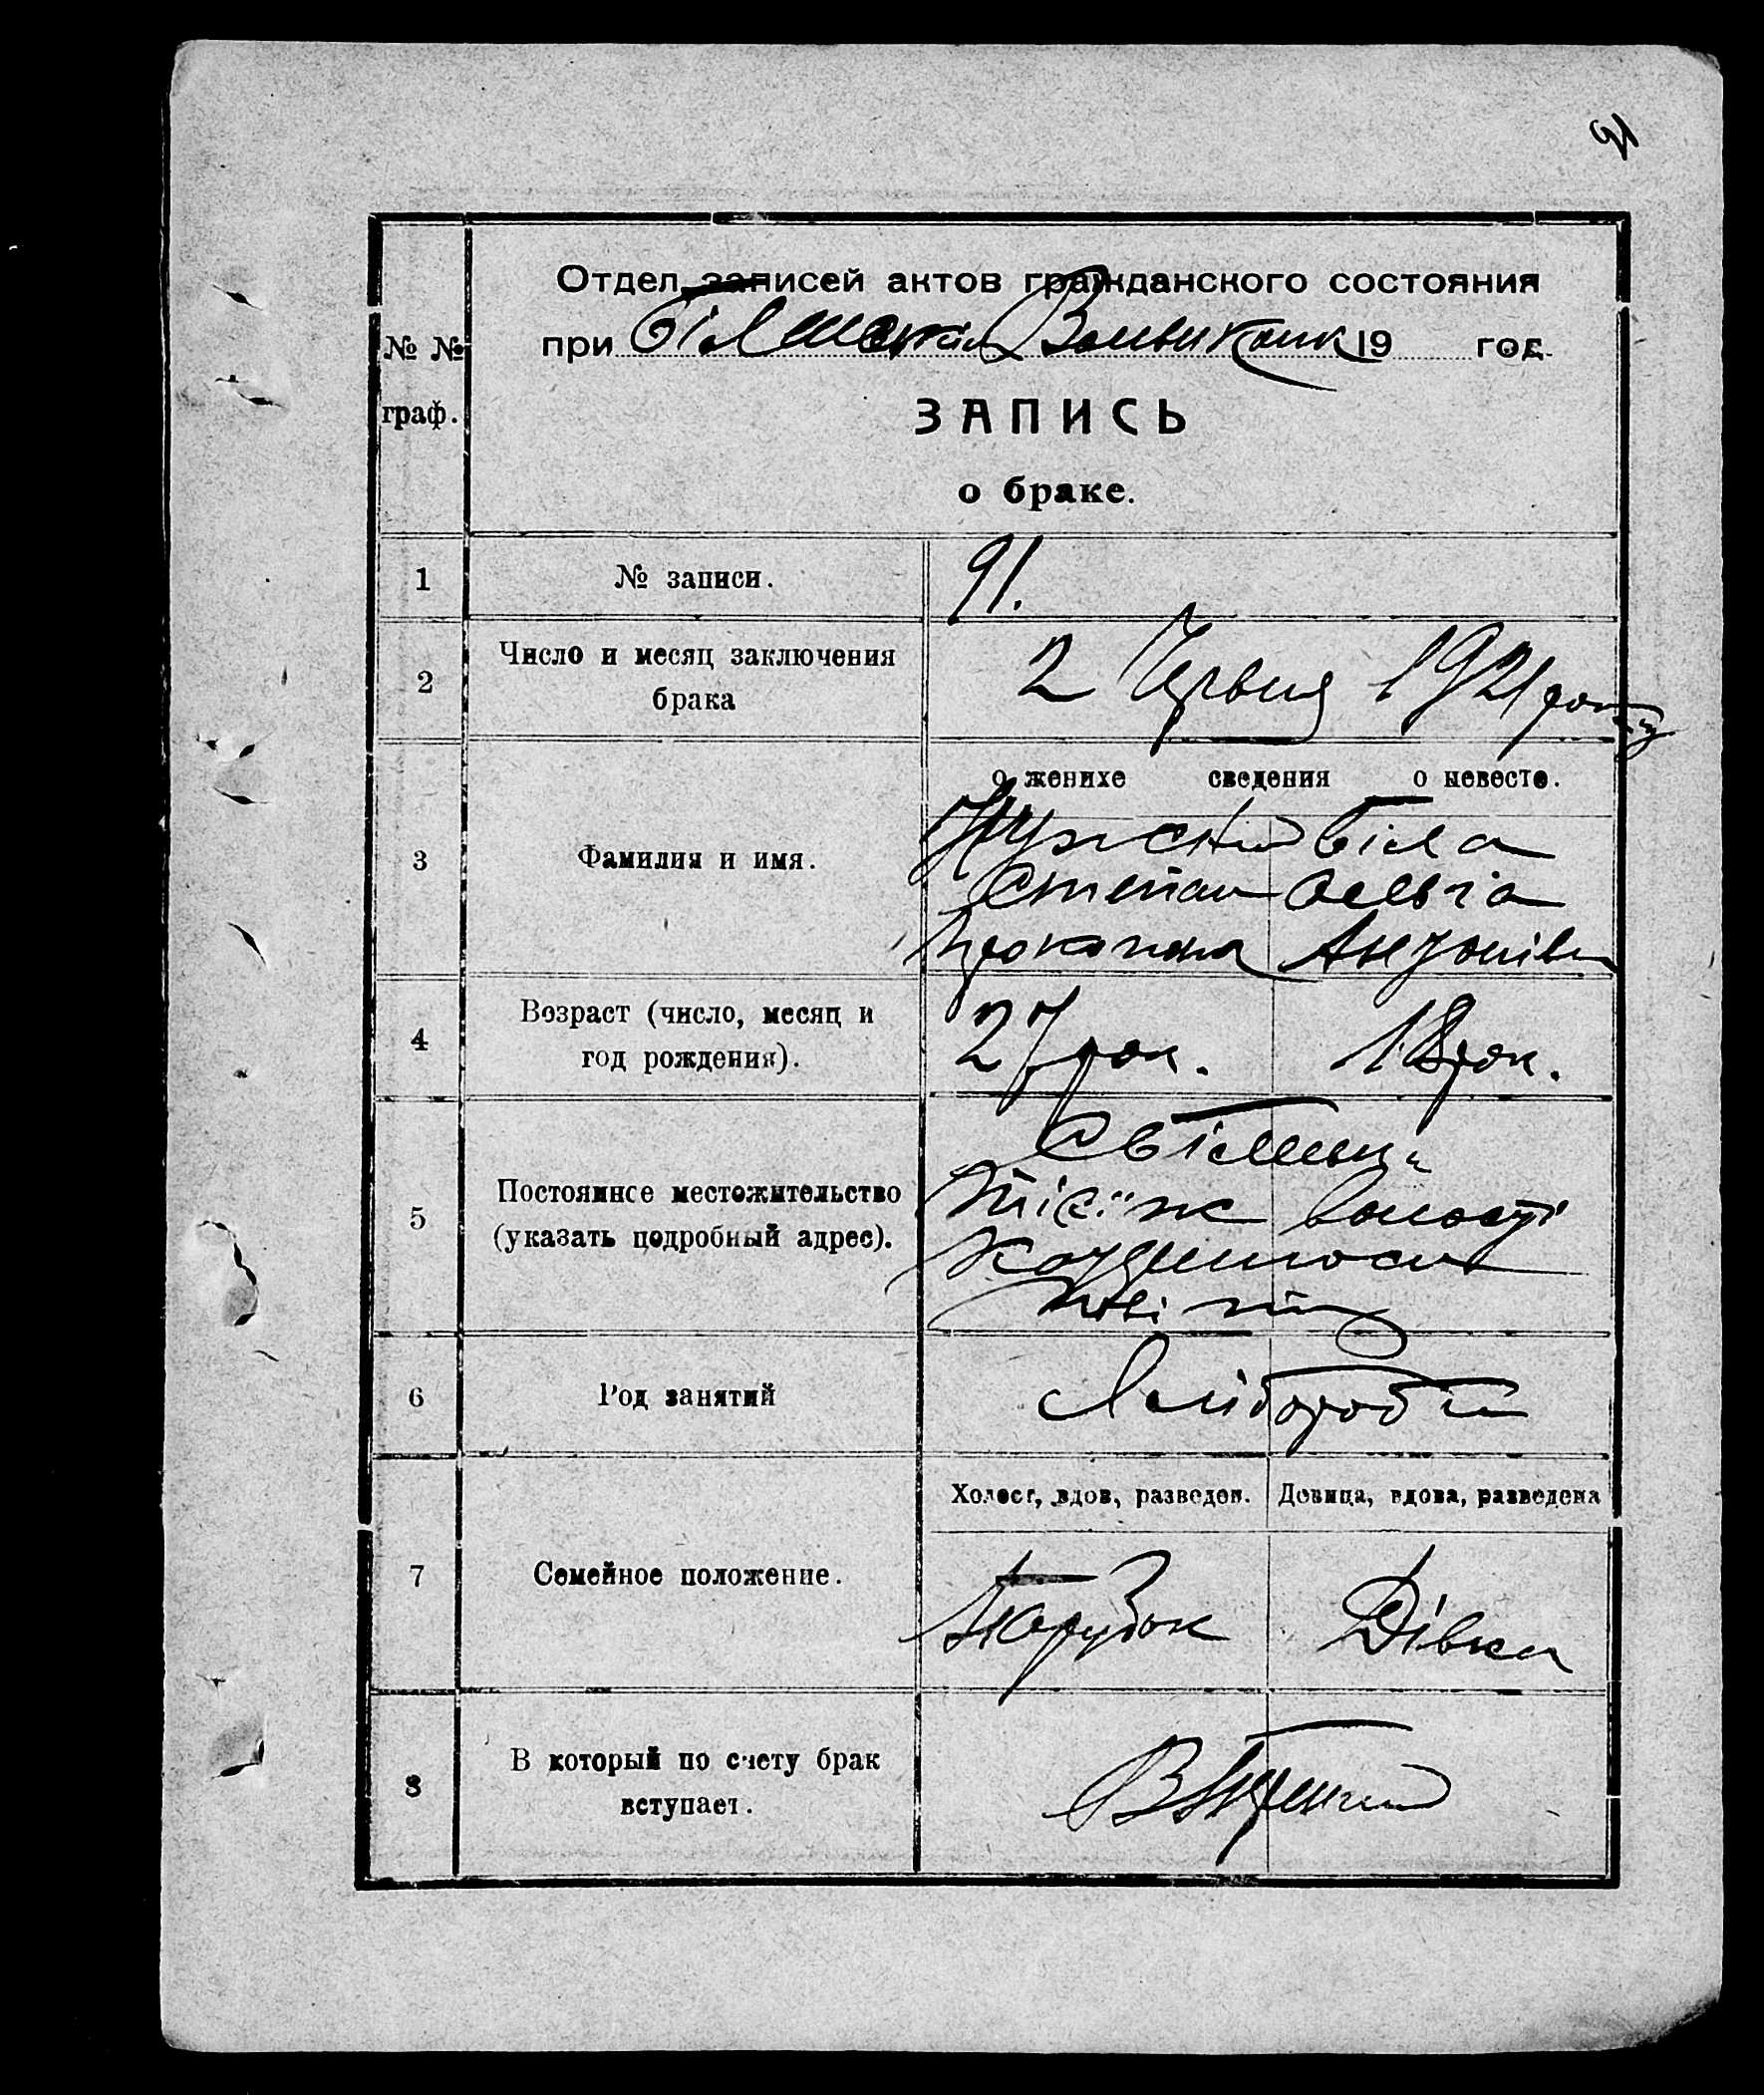 91
Отдел записей актов гражданского состояния
при Волвиконк 19 год
№ №
граф.
ЗАПИСЬ
о браке.
1 № записи. 91.
2 Число и месяц заключения
брака
2 Червня 1921 року
о женихе сведения о невесте.
3 Фамилия и имя.
Біла
Степан
Антонів
4 Возраст (число, месяц и
год рождения).
27 рок. 18 рок.
5 Постоянное местожительство
(указать подробный адрес).
волості
повіту
6 Род занятий
Хлібороби
Холост, вдов, разведен. Девица, вдова, разведена
7 Семейное положение.
Парубок Дівка
8 В который по счету брак
вступает.